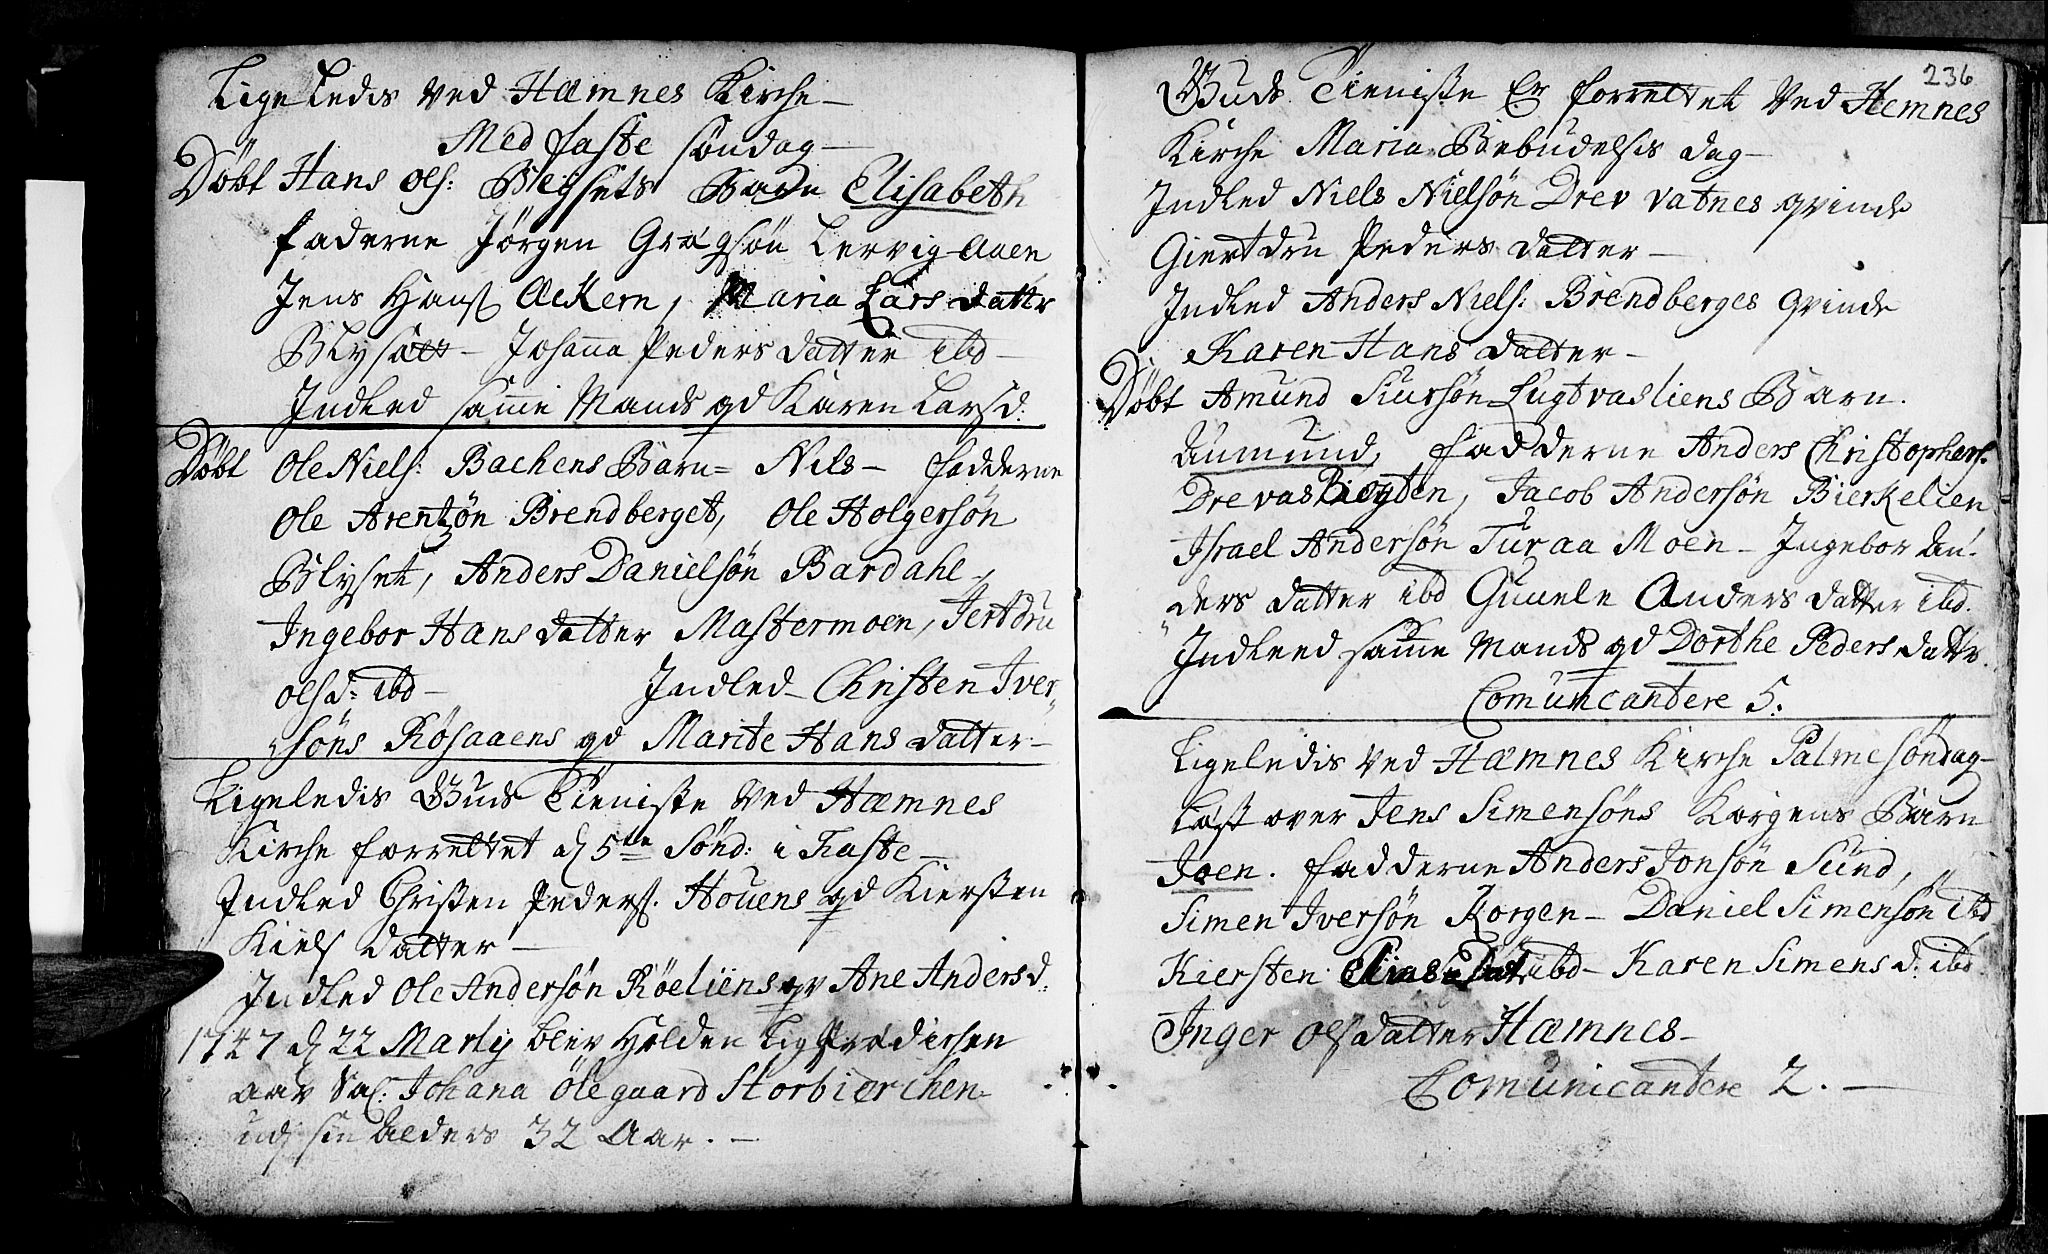 Ligeledis ved Hæmnes Kirche —
Med faste søndag —
Døbt Hans Ols: Blysets Barn Elisabeth
faderne Jörgen Grøgsøn Lervig-Aaen
Jens Hanß Ackern, Maria Lars datter
Blysæt — Johanna Peders datter ibd —
Indled samme Mands qd Karen Larsd:
Døbt Ole Niels: Bachens Barn = Nils — fadderne
Ole Arentzøn Brendberget, Ole Holgersøn
Blyset, Anders Danielsøn Bardahl —
Ingebor Hans datter Mastermoen, Jertdru
Olsd: ibd — Indled — Christen Iver„
„søns Røsaaens qd Marite Hans datter —
Ligeledis Guds Tieniste ved Hæmnes
Kirche forrettet d 5te Sønd: i Faste —
Indled Christen Peders. Houens qd Kiersten
Kiels datter —
Indled Ole Andersøn Röeliens qv Ane Andersd:
1747 d 22 Martij blev holden Ligprædichen
over Sal: Johana Ölegaard Storbierchen
udj sin alders 32 Aar. —
236
Guds Tieniste Er forrettet ved Hemnes
Kirche Maria Bebudelsis dag —
Indled Niels Nielsøn Drevvatnes qvinde
Giertdru Peders datter —
Indled Anders Niels: Brendberges qvinde
Karen Hans datter —
Døbt Amund Siursøn Lugtvasliens Barn.
Aumund, fadderne Anders Christophers:
Drevasbiogten, Jacob Andersøn Bierkelien
Israel Andersøn Turaa Moen — Ingebor An„
„ders datter ibd Gunele Anders datter ibd.
Indleed samme Mands qd Dorthe Peders datter.
Comunicantere 5:
Ligeledis ved Hæmnes Kirche Palmesøndag —
Læst over Jens Simensøns Korgens Barn
Joen. fadderne Anders Jonsøn Sund,
Simen Iversøn Korgen — Daniel Simensøn ibd
Kiersten ibd — Karen Simens d: ibd
Inger Ols datter Hæmnes —
Comunicantere 2. —